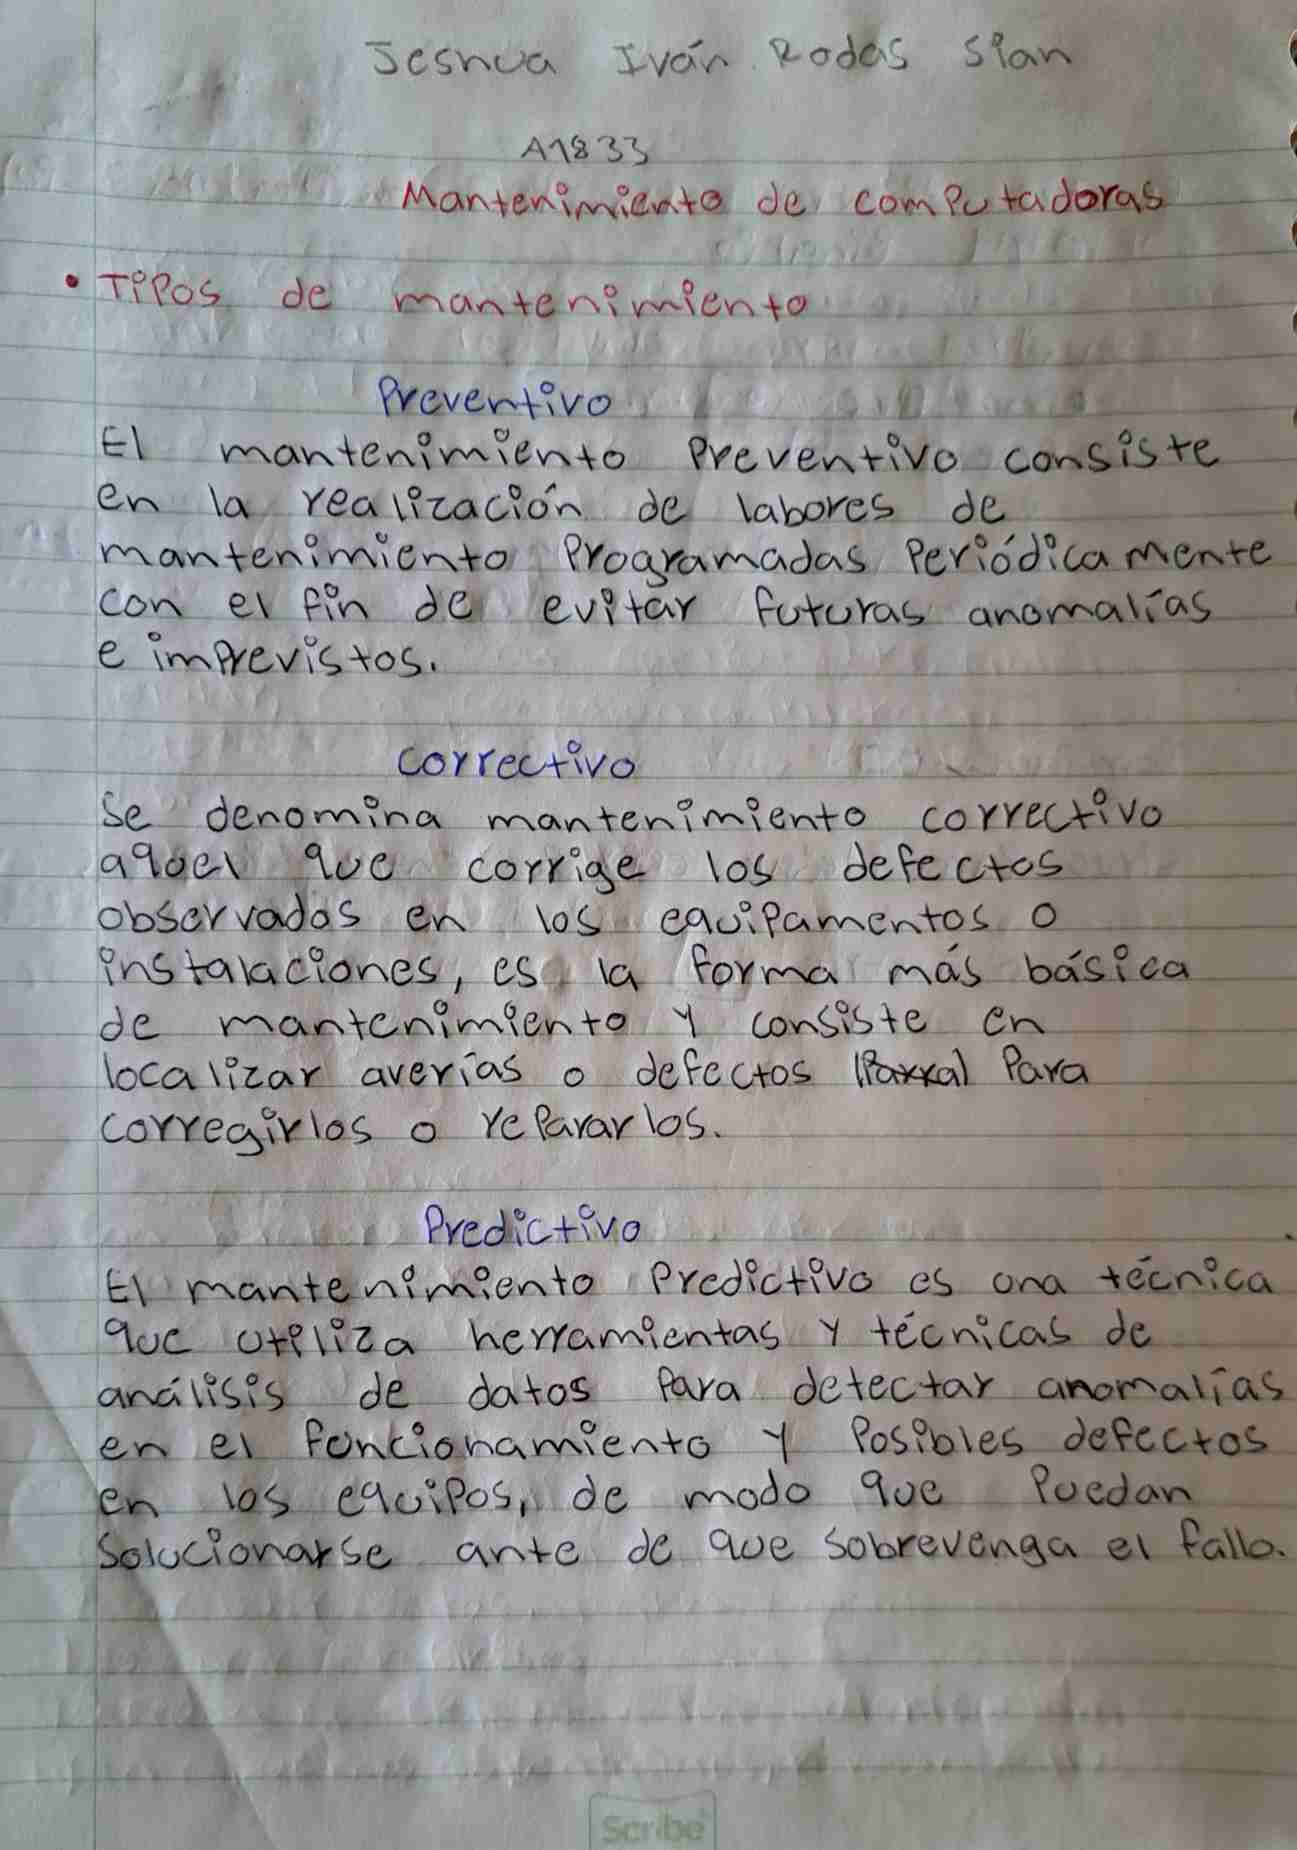 Jeshua Iván Rodas Sian
A1833
Mantenimiento de computadoras
• Tipos de mantenimiento
Preventivo
El mantenimiento preventivo consiste
en la realización de labores de
mantenimiento programadas periódicamente
con el fin de evitar futuras anomalías
e imprevistos.
Correctivo
Se denomina mantenimiento correctivo
aquel que corrige los defectos
observados en los equipamentos o
instalaciones, es la forma más básica
de mantenimiento y consiste en
localizar averías o defectos (Parra) Para
corregirlos o repararlos.
Predictivo
El mantenimiento predictivo es una técnica
que utiliza herramientas y técnicas de
análisis de datos para detectar anomalías
en el funcionamiento y posibles defectos
en los equipos, de modo que puedan
solucionarse ante de que sobrevenga el fallo.
Scribe